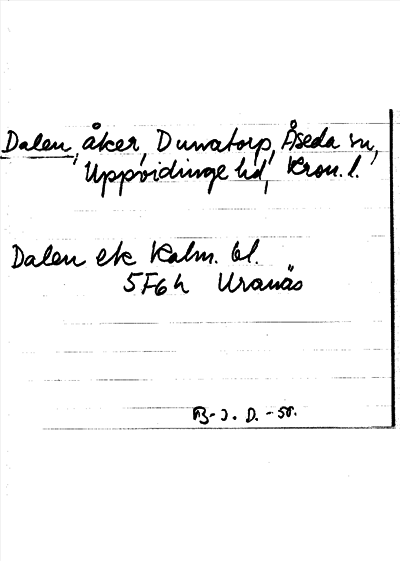 Dalen, åker, Dunatorp, Åseda sn,
Uppvidinge hd, Kron. l.
Dalen ek Kalm. bl.
5F6h Uranäs
B-J. D. -58.